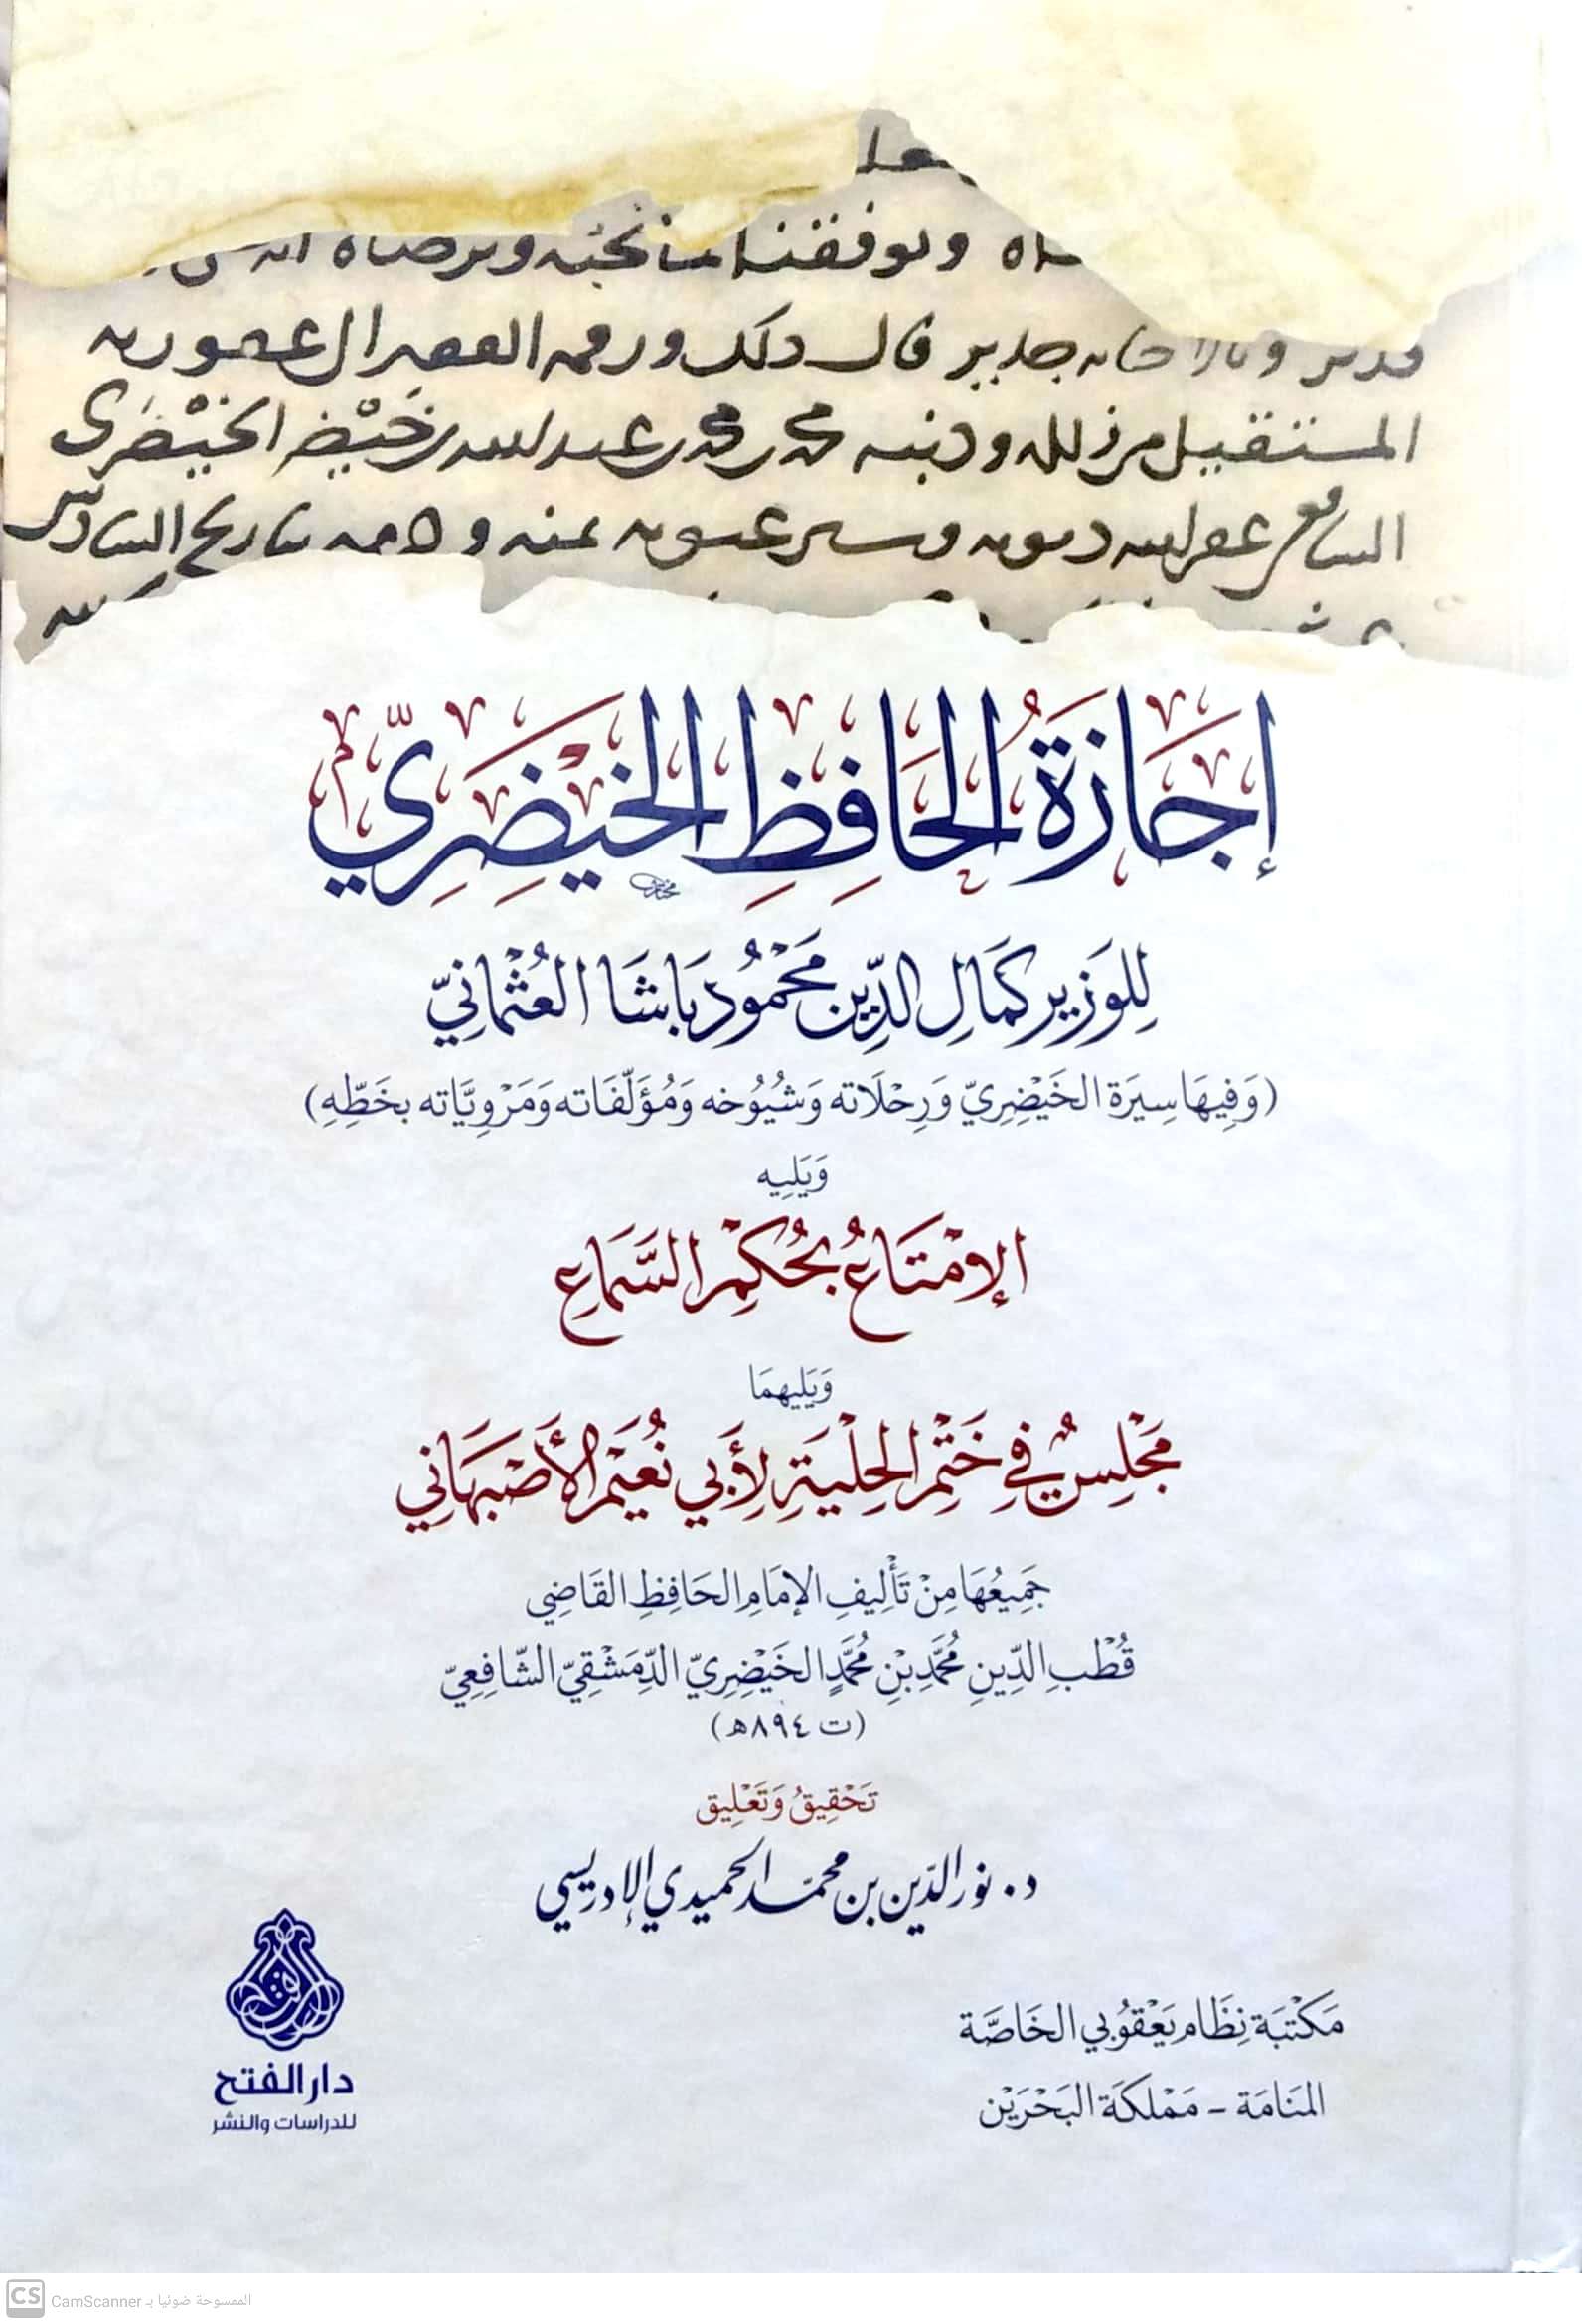 ويوفقنا لما نحبه ويرضاه
جدير قال ذلك ورقمه الفقير إلى عفو ربه
المستقيل من زلله وذنبه محمد بن محمد بن عبد الله بن خَيْضِر الخَيْضَري
الشافعي غفر الله ذنوبه وستر عيوبه بمنه وكرمه بتاريخ السادس
إِجَازَةُ الحَافِظِ الخَيْضِرِيِّ
لِلوَزِيرِ كَمَالِ الدِّينِ مَحْمُود بَاشَا العُثْمَانِيِّ
(وَفِيهَا سِيرَة الخَيْضِرِيّ وَرِحْلَاته وَشُيُوُخه وَمُؤَلَّفَاته وَمَرْوِيَّاته بخَطِّهِ)
وَيَلِيه
الإِمْتَاعُ بحُكْمِ السَّمَاعِ
وَيَليهمَا
مَجْلِسٌ فِي خَتْمِ الحِلْيَةِ لِأَبِي نُعَيْمٍ الأَصْبَهَانِي
جَمِيعُهَا مِنْ تَأْلِيفِ الإمَامِ الحَافِظِ القَاضِي
قُطْبِ الدِّينِ مُحَمَّدِ بْنِ مُحَمَّدٍ الخَيْضِرِيّ الدِّمَشْقِيّ الشَّافِعِيّ
(ت ٨٩٤هـ)
تَحْقِيقُ وَتَعْلِيق
د. نور الدّين بن محمّد الحميدي الإدريسي
مَكْتبَة نِظَام يَعْقُوبي الخَاصَّة
المَنَامَة - مَمْلكَة البَحْرَيْن
دار الفتح
للدراسات والنشر
CS CamScanner الممسوحة ضوئيا بـ